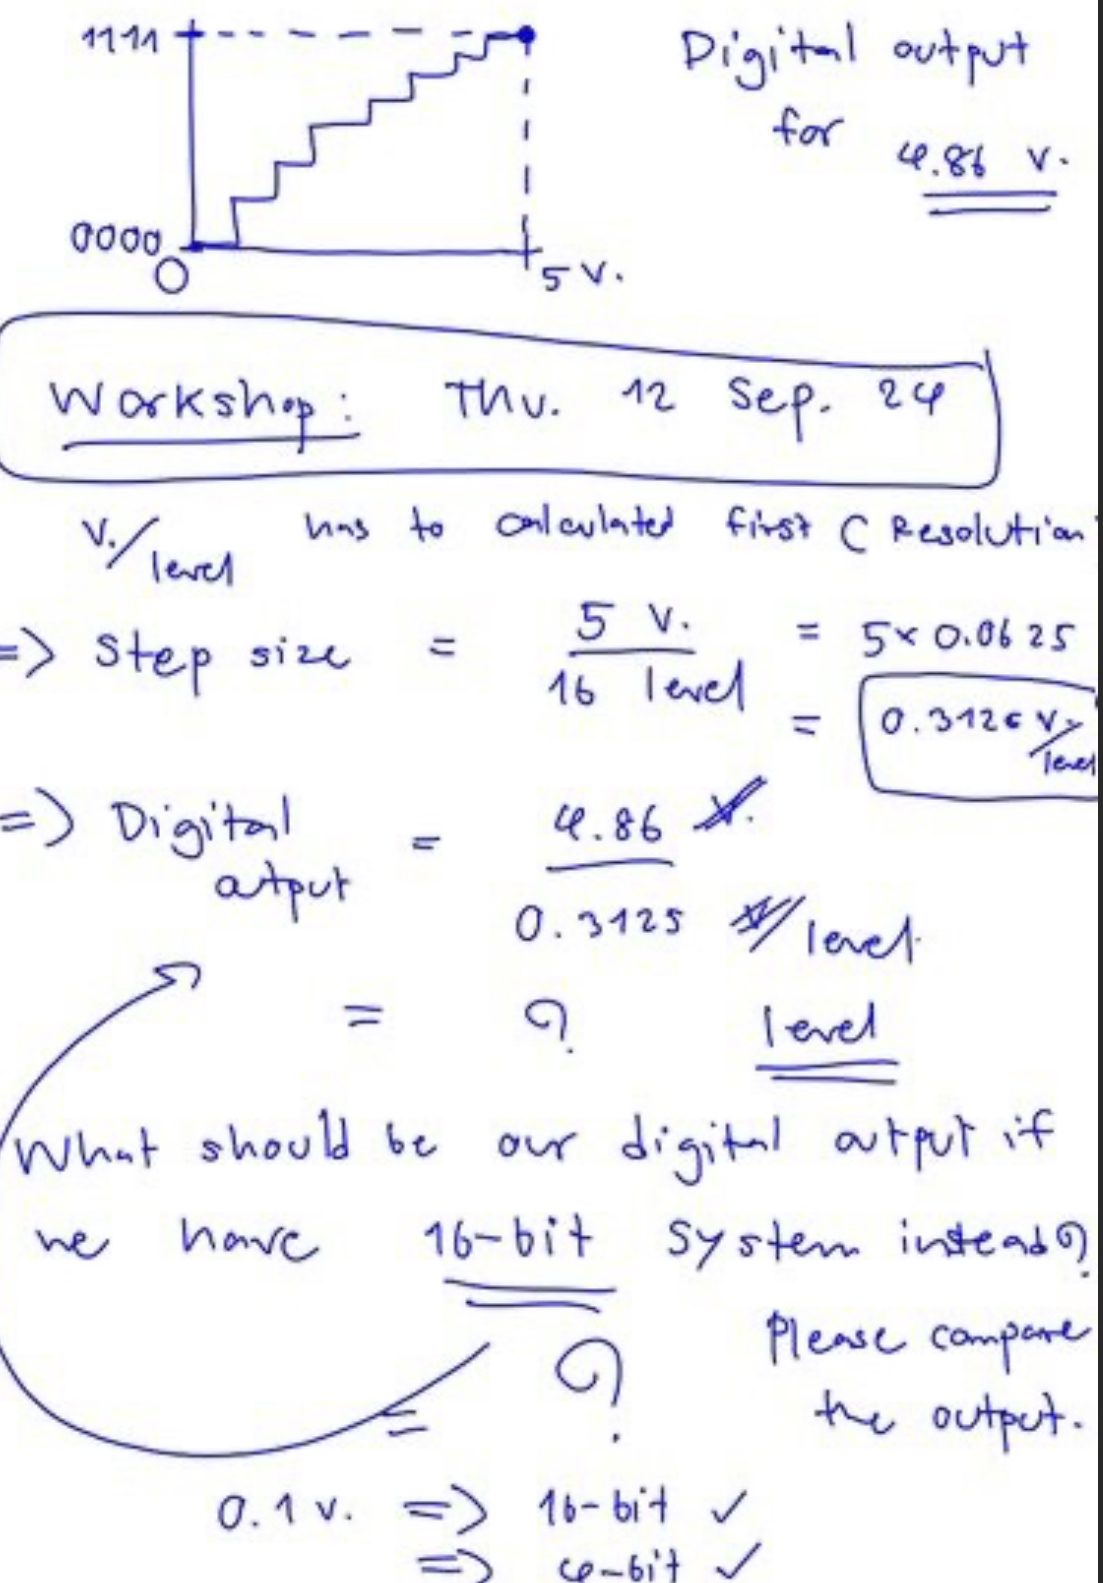 1111
Digital output
for 4.86 V.
0000
0
5 V.
Workshop: Thu. 12 Sep. 24
V./level has to calculated first ( Resolution
=> Step size = 5 V. / 16 level = 5 x 0.0625
= 0.3125 V./level
=> Digital output = 4.86 V. / 0.3125 V/level
= ? level
What should be our digital output if
we have 16-bit system instead?
Please compare
the output.
= ?
0.1 V. => 16-bit ✓
=> 4-bit ✓